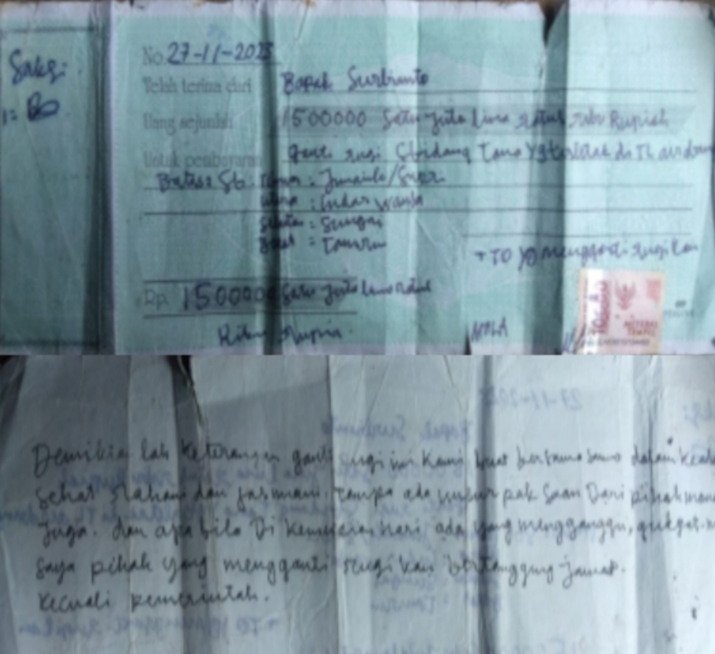 Saksi:
1:
No. 27-11-2023
Telah terima dari Bapak Surbianto
Uang sejumlah 1500000 Satu Juta Lima ratus ribu Rupiah
Untuk pembayaran Ganti rugi Sbidang Tana Yg terletak di
Batas Sb: : /
: Indar
Selatan : Sungai
Barat : Tamrin
+ TO yg mengganti rugikan
Rp. 1500000 Satu Juta Lima ratus
Ribu Rupia.
METERAI
TEMPEL
Demikia lah Keterangan ganti rugi ini Kami buat bersama sama dalam
Sehat rohani dan jasmani. tampa ada unsur pak saan Dari pihak mana
juga. dan apa bila Di Kemudian hari ada yang mengganggu,
saya pihak yang mengganti rugi kan bertanggung-jawab.
kecuali pemerintah.